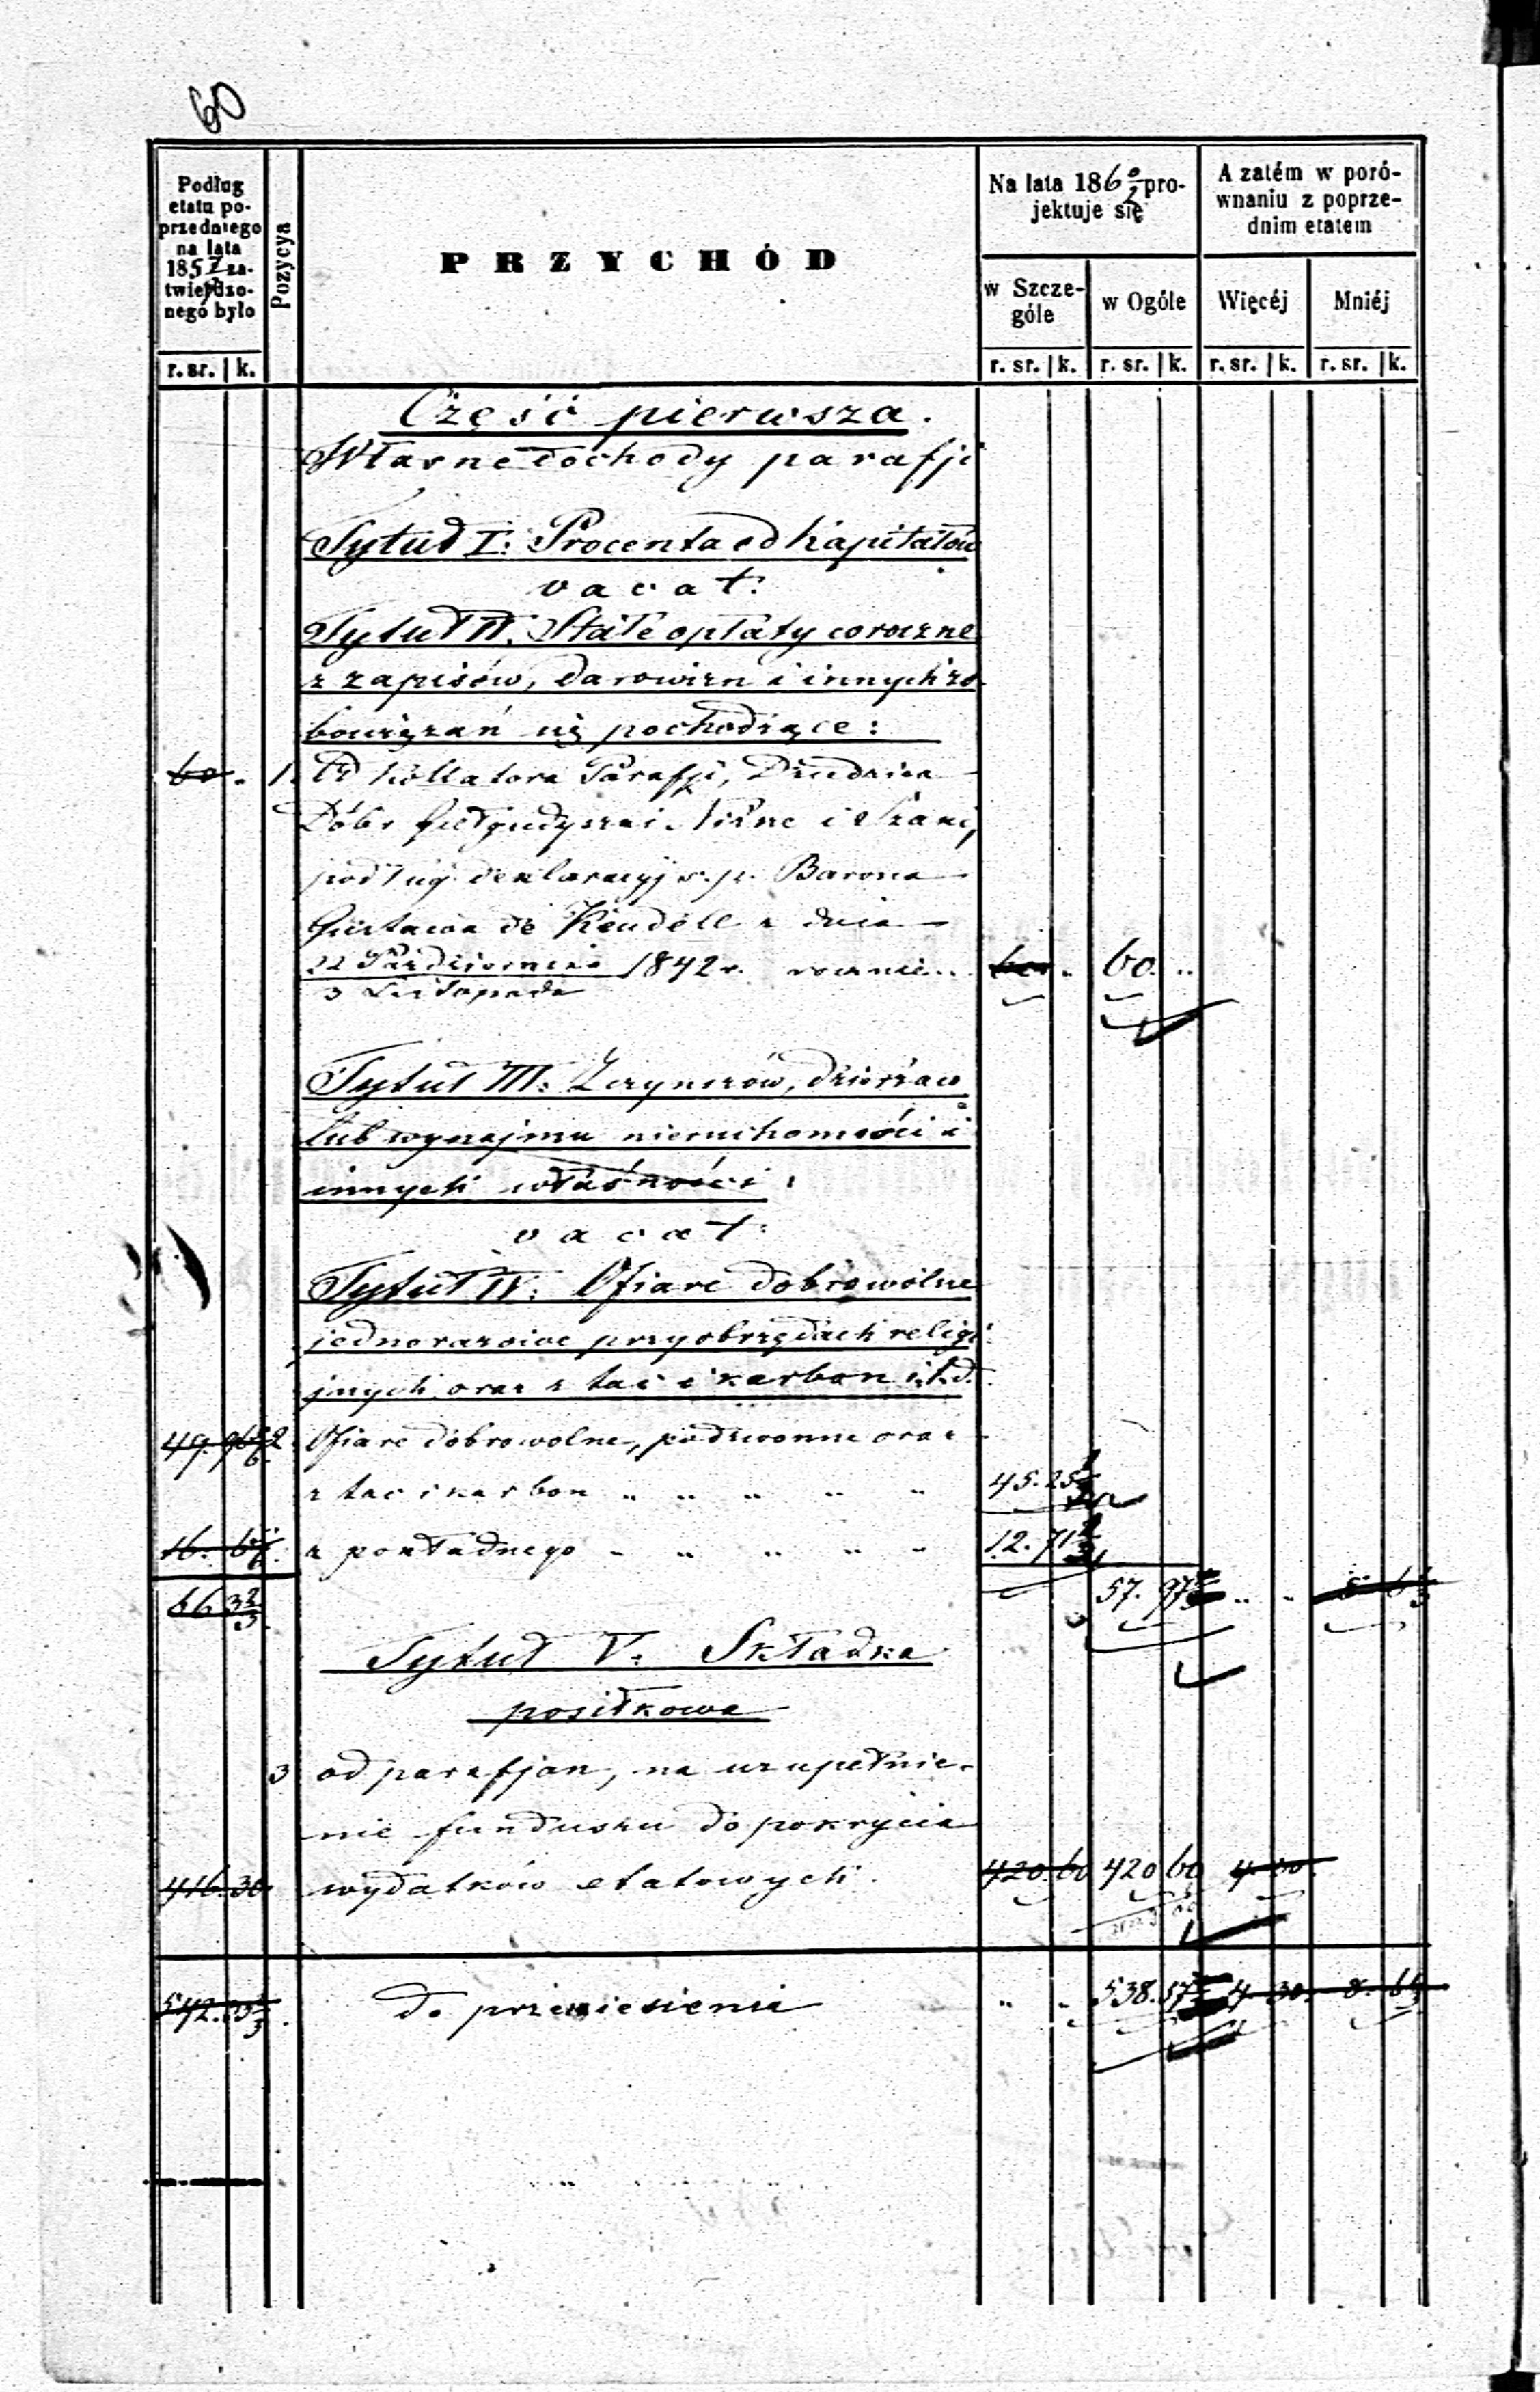 60
Podług etatu poprzedniego na lata 1857 zatwierdzonego było
Pozycya
PRZYCHÓD
Na lata 186 0/2 projektuje się
A zatém w porównaniu z poprzednim etatem
w Szczególe
w Ogóle
Więcéj
Mniéj
r. sr. k.
r. sr. k. r. sr. k. r. sr. k. r. sr. k.
Część pierwsza.
Własne dochody parafji
Tytuł I: Procenta od kapitałów
vacat.
Tytuł II. Stałe opłaty coroczne
z zapisów, darowizn i innych zo-
bowiązań się pochodzące:
60 . 1. Od Kollatora Parafji, Dziedzica
Dóbr Niżne i
podług deklaracyj ś. p. Barona
Gustawa de Keudell z dnia
22 Października / 3 Listopada 1842 r. rocznie .. 60 . 60. ..
Tytuł III: Z czynszów, dzierżaw
lub wynajmu nieruchomości i
innych własności:
vacat.
Tytuł IV: Ofiare dobrowolne
jednorazowe przy obrzędach religi-
jnych oraz z tac i karbon i.t.d.
49. 2. Ofiare dobrowolne, podzwonne oraz
z tac i karbon .. .. .. .. .. 45. 25
16. z pokładnego .. .. .. .. .. 12. 71
66 3 2/3 57. 97
Tytuł V. Składka
posiłkowa
3 od parafjan, na uzupełnie-
nie funduszu do pokrycia
416. 30 wydatków etatowych. 420. 60 420 60 4. 30.
542. do przeniesienia .. .. 538. 57 4. 30. 8.